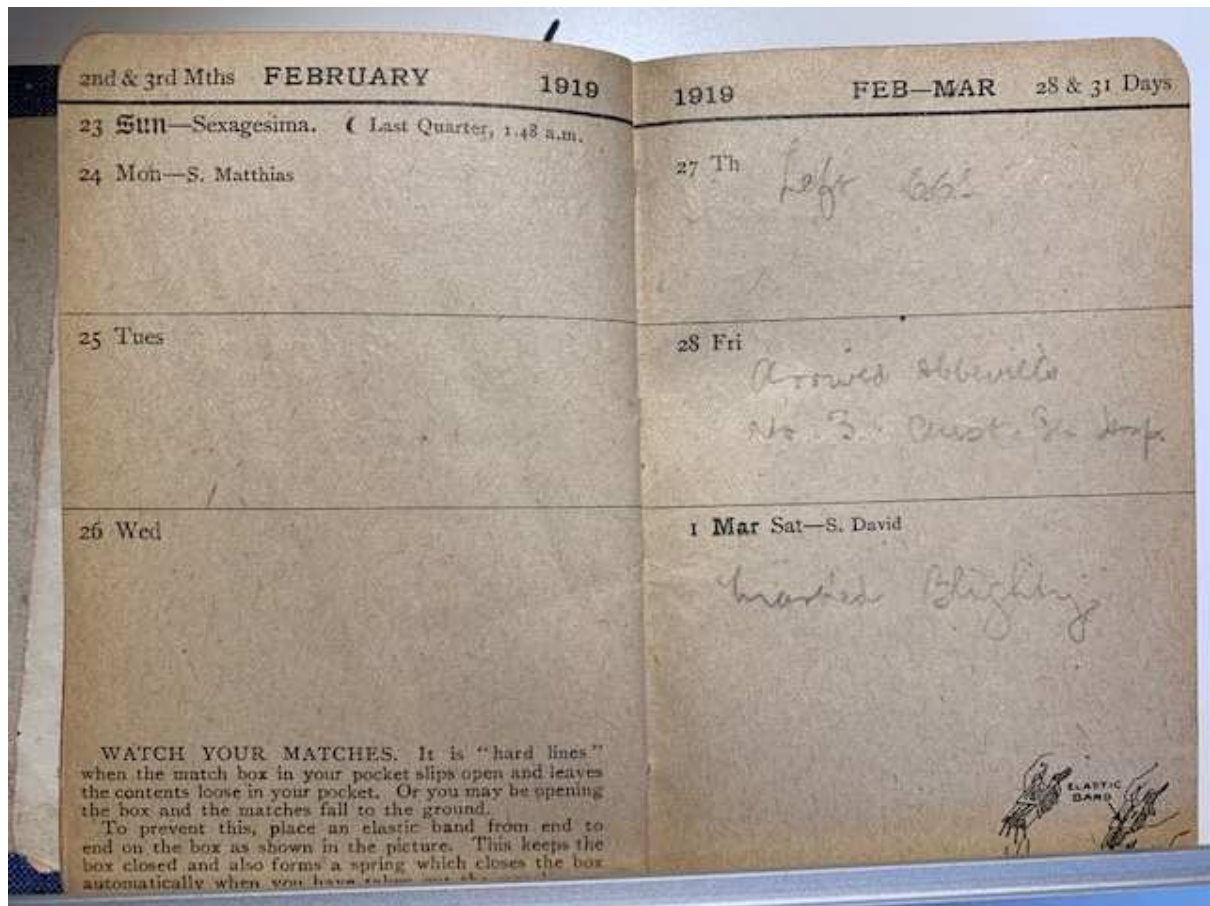 2nd & 3rd Mths FEBRUARY 1919
23 Sun—Sexagesima. ☾ Last Quarter, 1.48 a.m.
24 Mon—S. Matthias
25 Tues
26 Wed
WATCH YOUR MATCHES. It is "hard lines"
when the match box in your pocket slips open and leaves
the contents loose in your pocket. Or you may be opening
the box and the matches fall to the ground.
To prevent this, place an elastic band from end to
end on the box as shown in the picture. This keeps the
box closed and also forms a spring which closes the box
automatically when you have taken out the
1919 FEB—MAR 28 & 31 Days
27 Th
Left
28 Fri
Arrived Abbeville
No. 3. Aust. Gn Hosp.
1 Mar Sat—S. David
Marked Blighty
ELASTIC
BAND